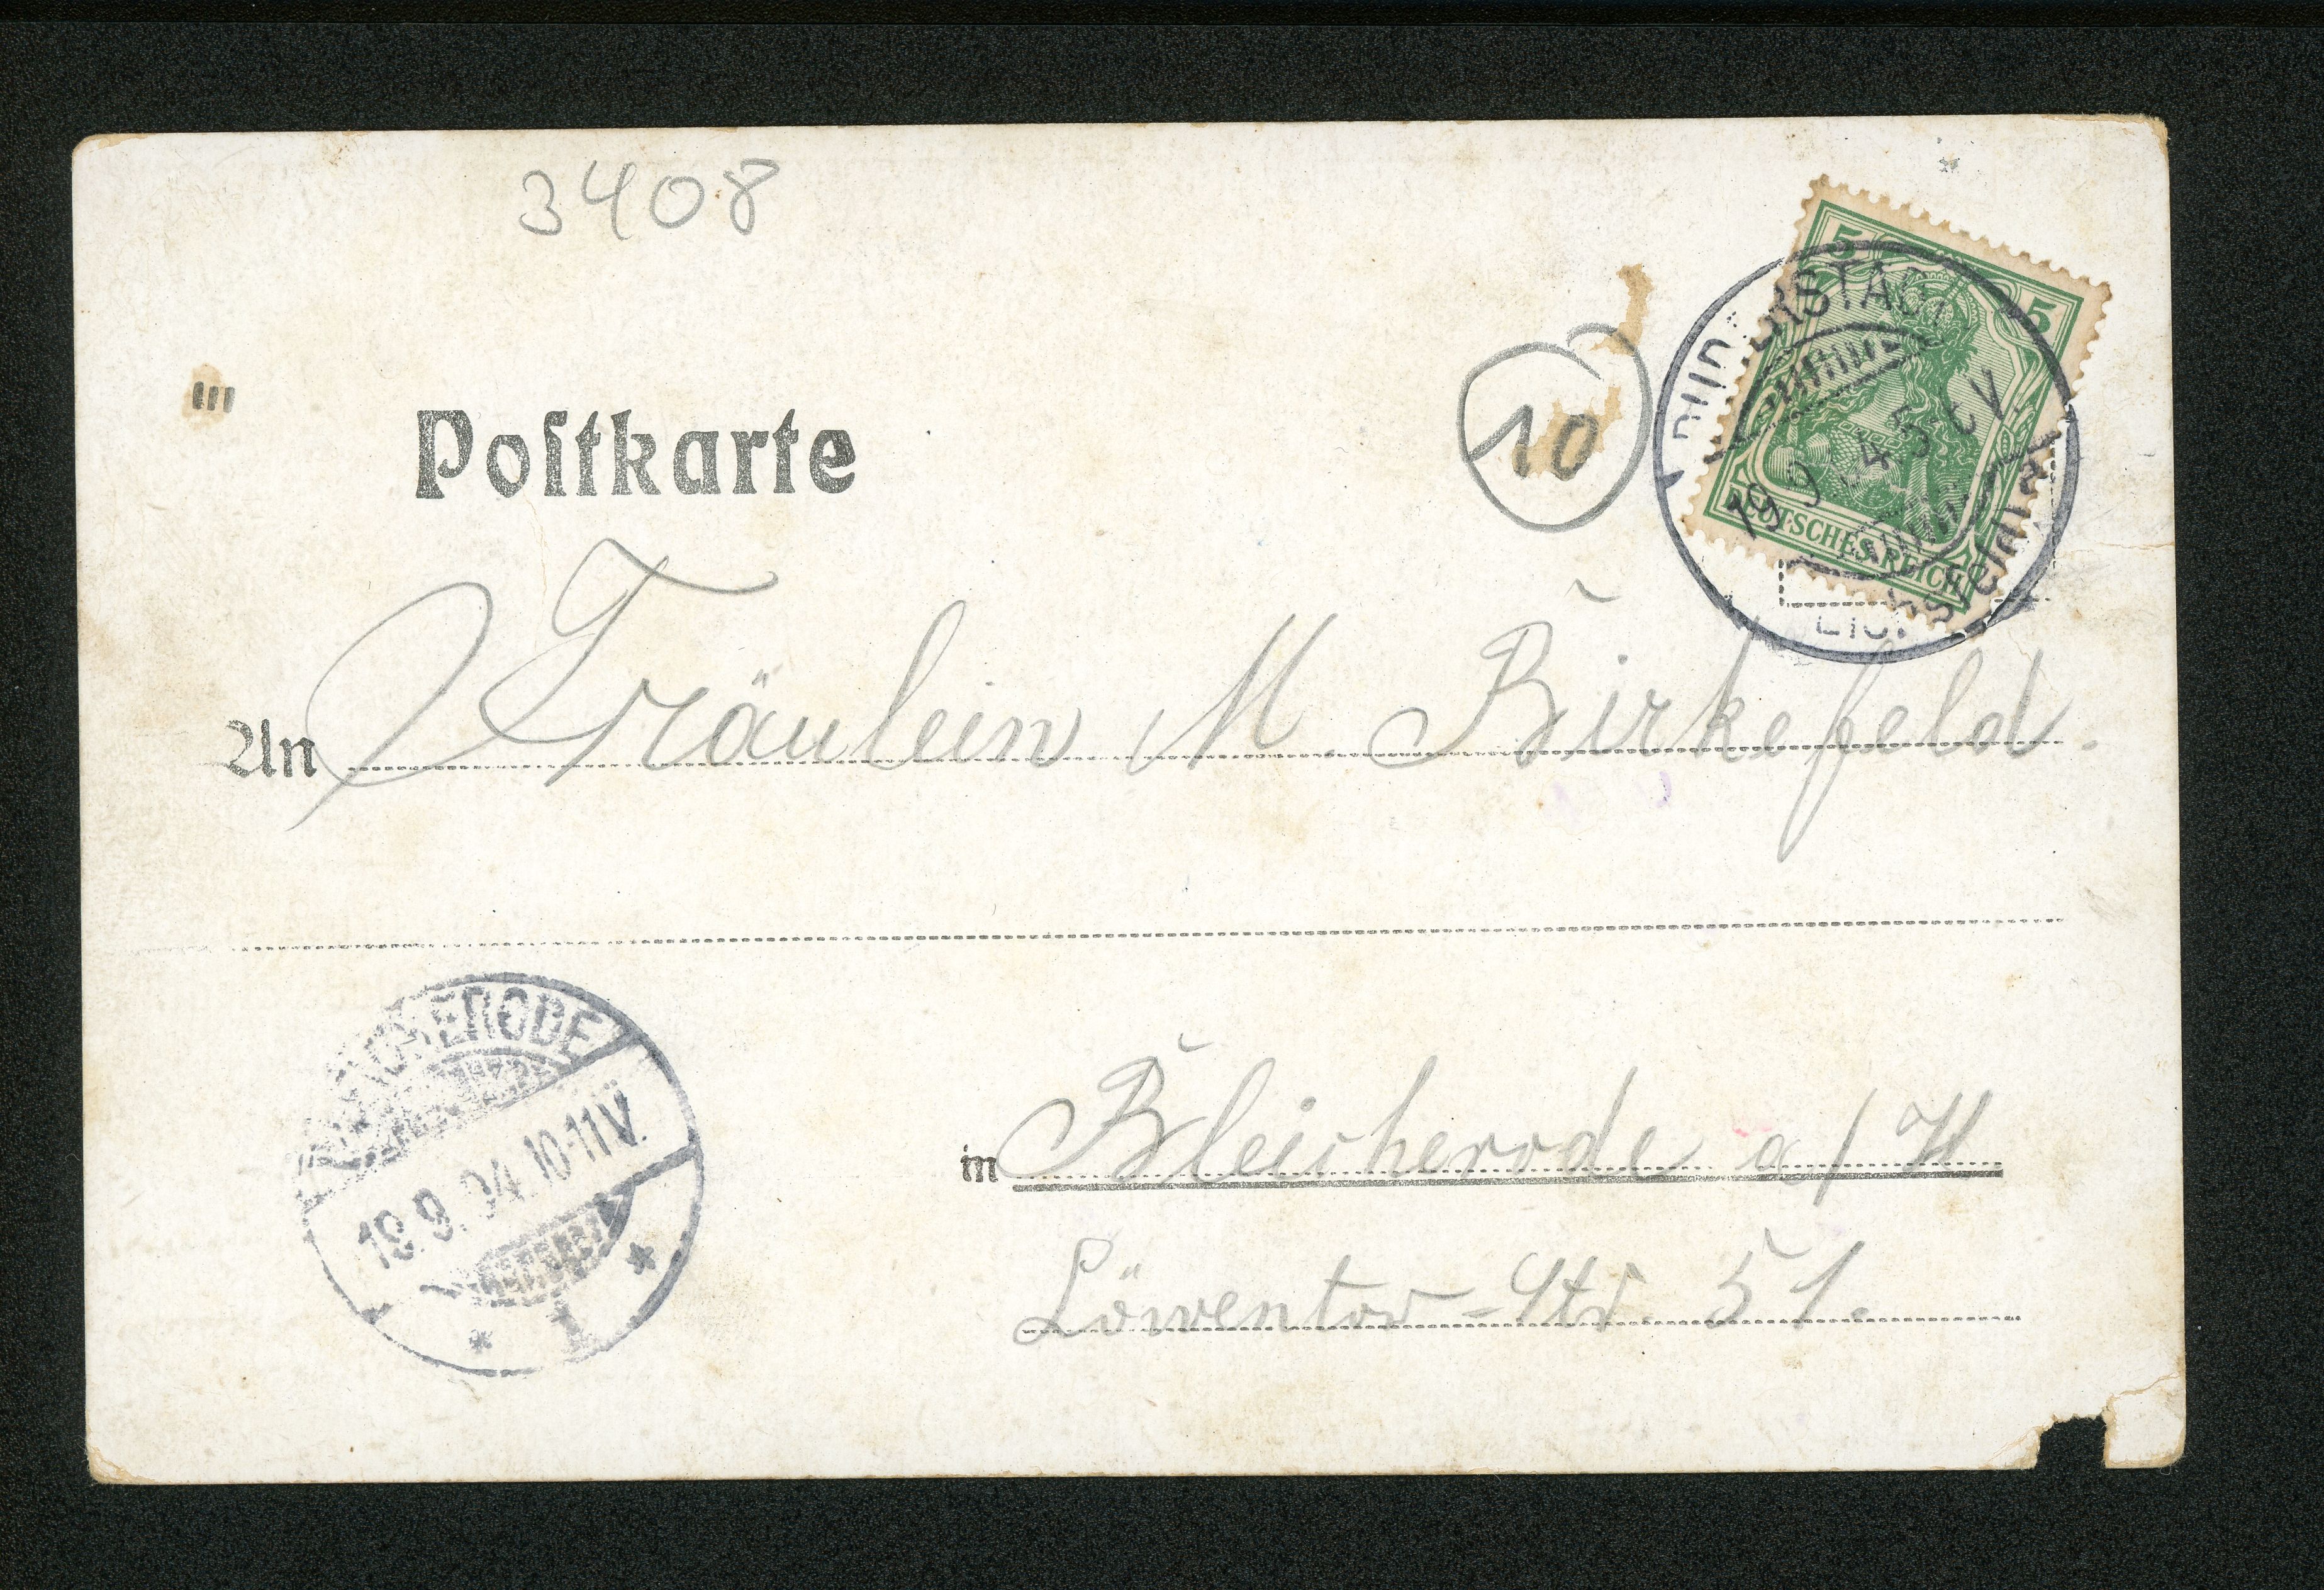 3408
5
5
DUDERSTADT
19 9 4 5-6 V.
(Eichsfeld)
DEUTSCHES REICH
10
Poſtkarte
An Fräulein M. Birkefeld.
BLEICHERODE
19.9.04.10-11V.
* 1 *
in Bleicherode a/H
Löwentor-Str. 51.